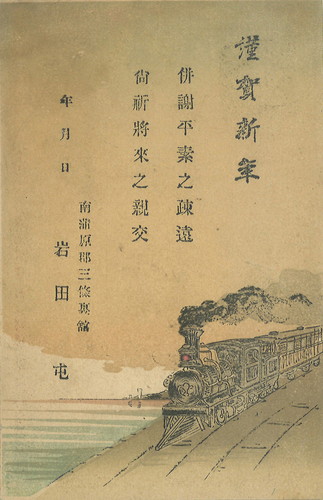 謹賀新年
併謝平素之疎遠
尙祈將來之親交
年月日
南蒲原郡三條裏舘
岩田屯